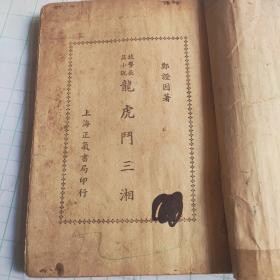 鄭證因著
技擊長
篇小說
龍虎鬥三湘
上海正氣書局印行